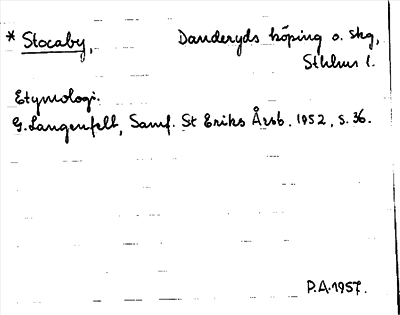 * Stocaby, Danderyds köping o. skg,
Sthlms l.
Etymologi.
G. Langenfelt, Samf. St Eriks Årsb. 1952, s. 36.
P.A. 1957.